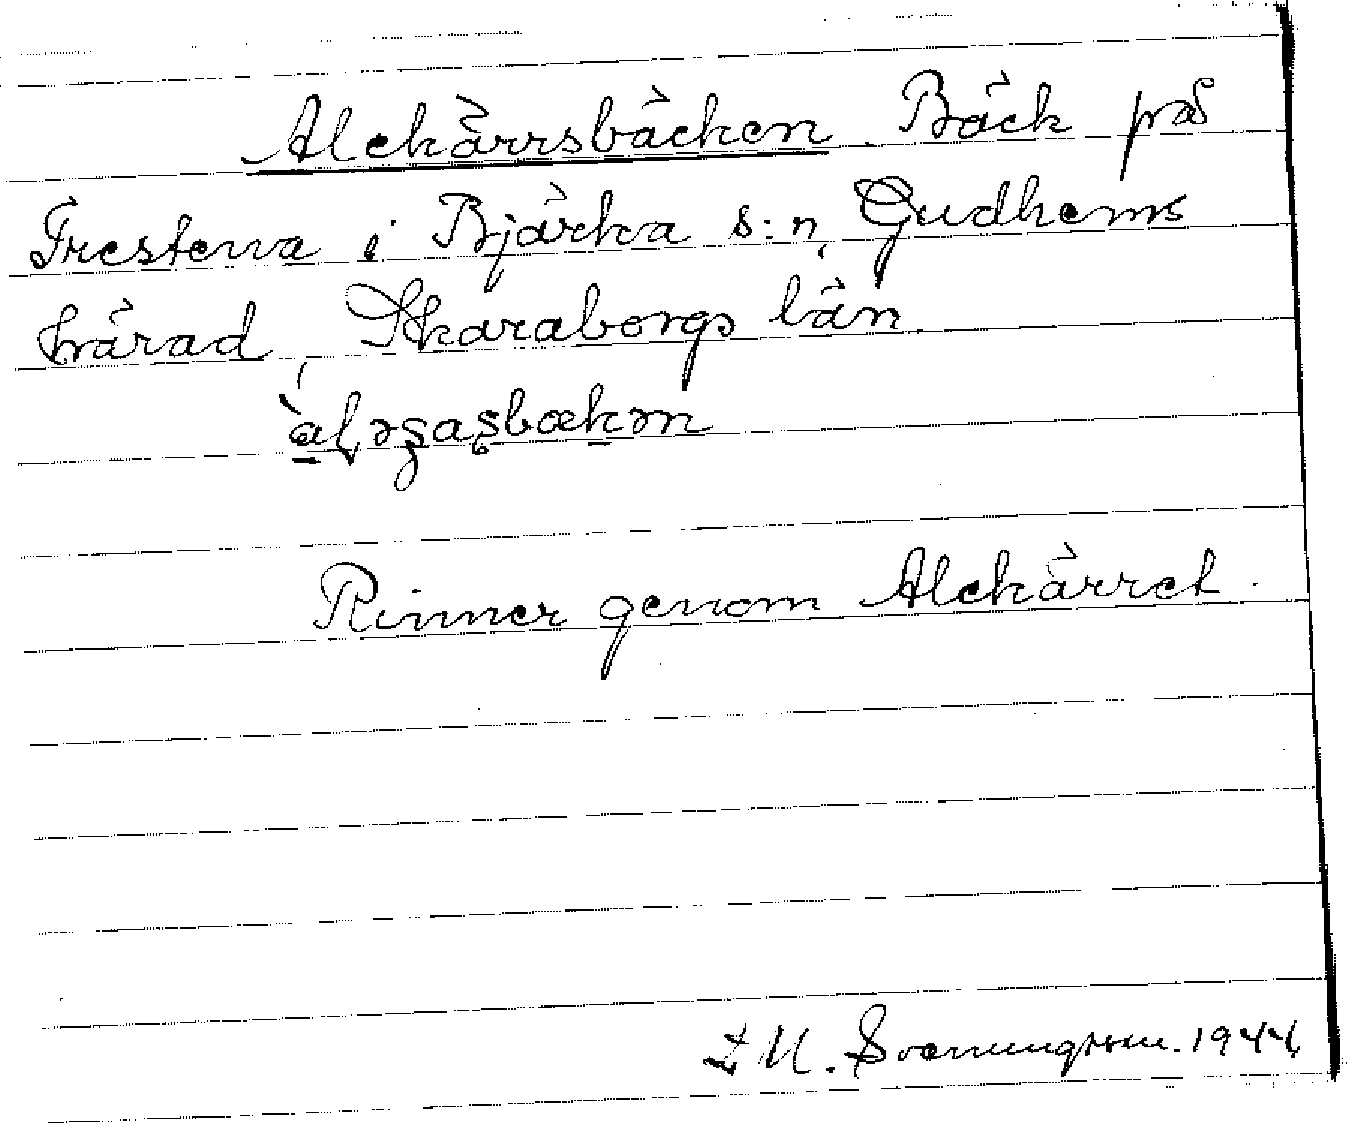 Alekärrsbäcken Bäck på
Frestena i Bjärka s:n, Gudhems
härad, Skaraborgs län
Rinner genom Alekärret.
Svenungsson. 1944